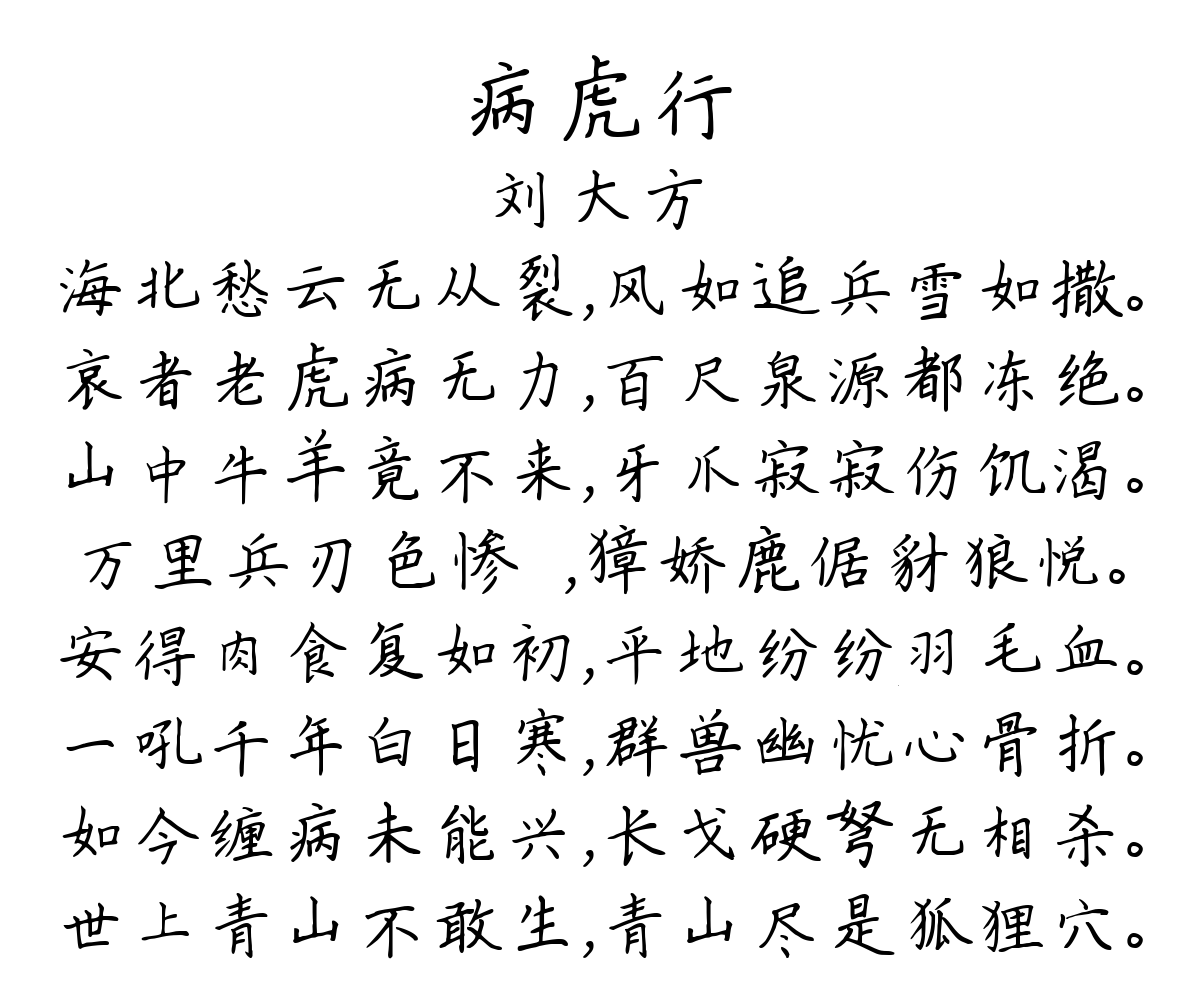 病虎行
刘大方
海北愁云无从裂,风如追兵雪如撒。
哀者老虎病无力,百尺泉源都冻绝。
山中牛羊竟不来,牙爪寂寂伤饥渴。
万里兵刃色惨 ,獐娇鹿倨豺狼悦。
安得肉食复如初,平地纷纷羽毛血。
一吼千年白日寒,群兽幽忧心骨折。
如今缠病未能兴,长戈硬弩无相杀。
世上青山不敢生,青山尽是狐狸穴。